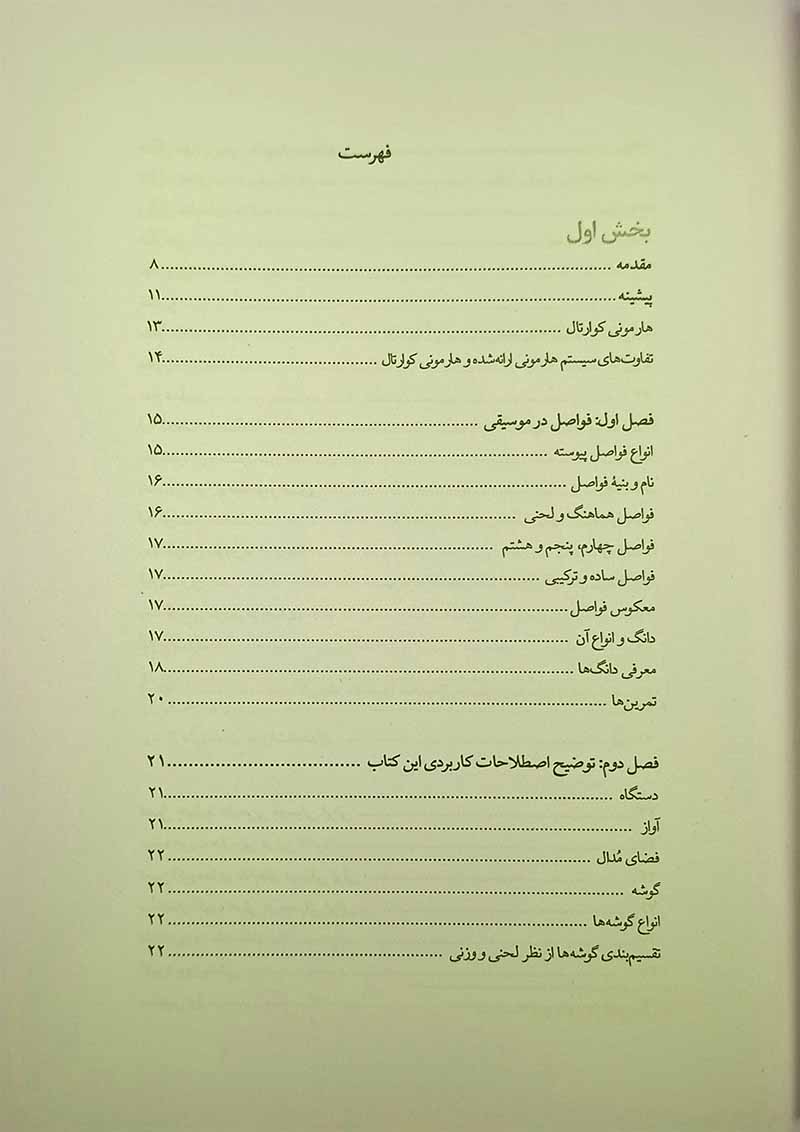 فهرست
بخش اول
مقدمه ........ ۸
پیشینه ........ ۱۱
هارمونی کوارتال ........ ۱۳
تفاوت‌های سیستم هارمونی ارائه‌شده و هارمونی کوارتال ........ ۱۴
فصل اول: فواصل در موسیقی ........ ۱۵
انواع فواصل پیوسته ........ ۱۵
نام و بنیۀ فواصل ........ ۱۶
فواصل هماهنگ و لحنی ........ ۱۶
فواصل چهارم، پنجم و هشتم ........ ۱۷
فواصل ساده و ترکیبی ........ ۱۷
معکوس فواصل ........ ۱۷
دانگ و انواع آن ........ ۱۷
معرفی دانگ‌ها ........ ۱۸
تمرین‌ها ........ ۲۰
فصل دوم: توضیح اصطلاحات کاربردی این کتاب ........ ۲۱
دستگاه ........ ۲۱
آواز ........ ۲۱
فضای مُدال ........ ۲۲
گوشه ........ ۲۲
انواع گوشه‌ها ........ ۲۲
تقسیم‌بندی گوشه‌ها از نظر لحنی و وزنی ........ ۲۲